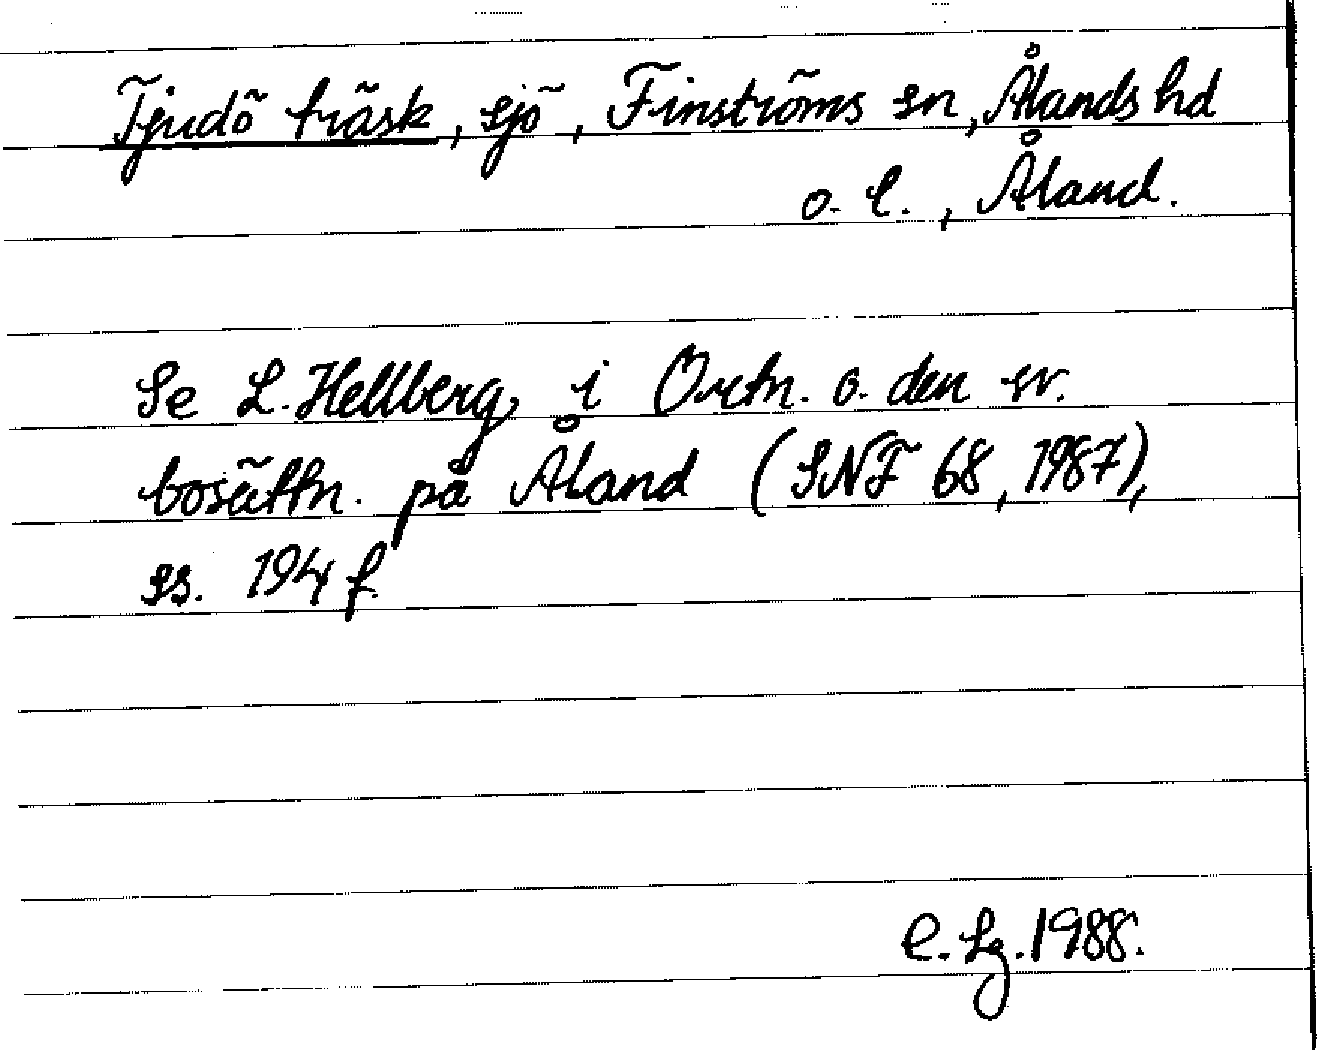 Tjudö träsk, sjö, Finströms sn, Ålands hd
o. l., Åland.
Se L. Hellberg, i Ortn. o. den sv.
bosättn. på Åland (SNF 68, 1987),
ss. 194 f.
1988.